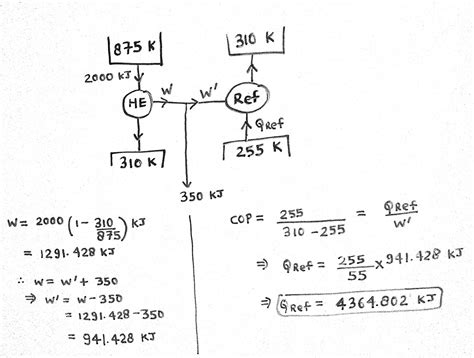 875 K
310 K
2000 KJ
W
W'
HE
Ref
QRef
310 K
255 K
350 KJ
W = 2000 (1 - 310/875) KJ
= 1291.428 KJ
∴ W = W' + 350
⇒ W' = W - 350
= 1291.428 - 350
= 941.428 KJ
COP = 255/310 - 255 = QRef/W'
⇒ QRef = 255/55 x 941.428 KJ
⇒ QRef = 4364.802 KJ